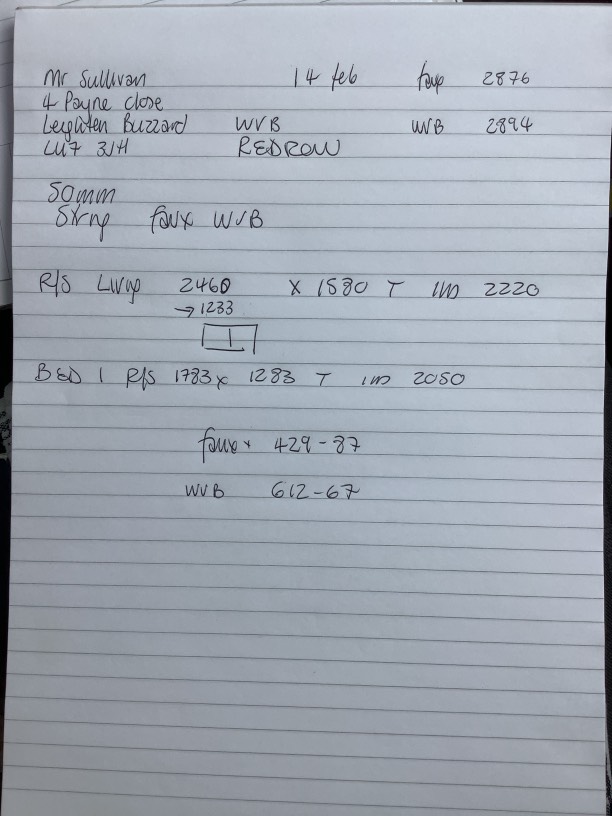 Mr Sullivan 14 feb faux 2876
4 Payne close
Leighten Buzzard WVB WVB 2894
LU7 3JH REDROW
50mm
String faux WVB
R/S Living 2460 x 1580 T 1m 2220
→ 1233
BED 1 R/S 1783 x 1283 T 1m 2050
faux 429-87
WVB 612-67